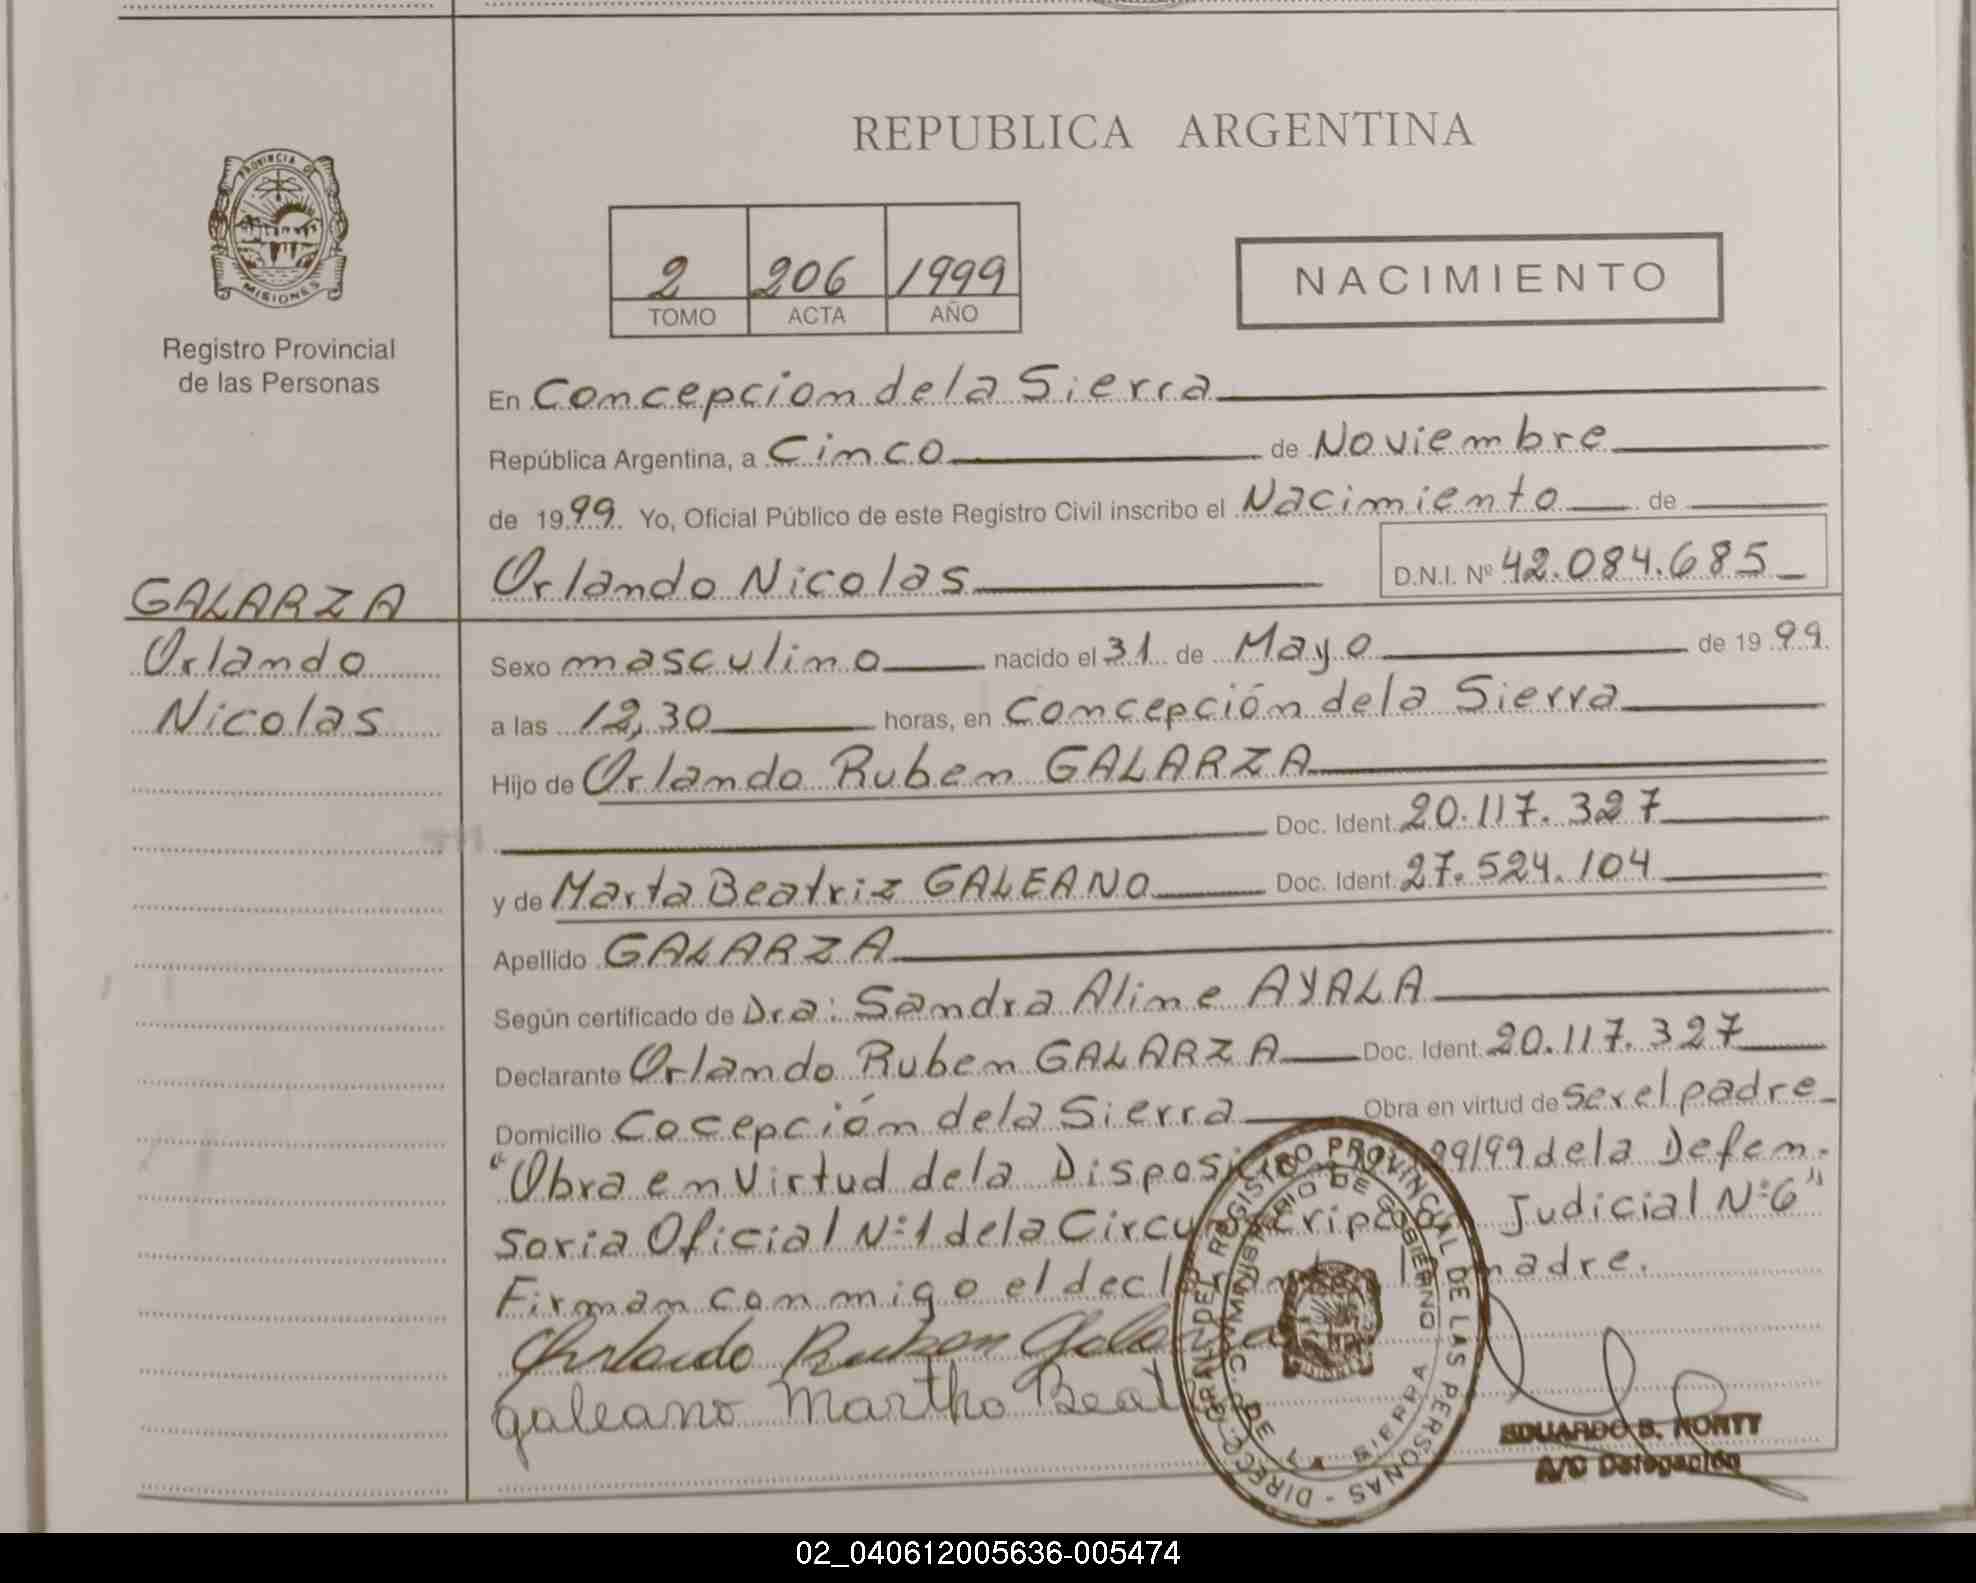 REPUBLICA ARGENTINA
PROVINCIA DE
MISIONES
Registro Provincial
de las Personas
2 206 1999
TOMO ACTA AÑO
NACIMIENTO
En Concepcion de la Sierra
República Argentina, a Cinco de Noviembre
de 1999. Yo, Oficial Público de este Registro Civil inscribo el Nacimiento de
Orlando Nicolas D.N.I. Nº 42.084.685
GALARZA
Orlando
Nicolas
Sexo masculino nacido el 31 de Mayo de 1999.
a las 12,30 horas, en Concepción de la Sierra
Hijo de Orlando Ruben GALARZA
Doc. Ident. 20.117.327
y de Marta Beatriz GALEANO Doc. Ident. 27.524.104
Apellido GALARZA
Según certificado de Dra: Sandra Aline AYALA
Declarante Orlando Ruben GALARZA Doc. Ident. 20.117.327
Domicilio Cocepción de la Sierra Obra en virtud de ser el padre
"Obra en Virtud de la Disposición 99/99 de la Defen-
soria Oficial Nº1 de la Circunscripción Judicial Nº6"
Firman conmigo el declarante la madre.
Orlando Ruben Galarza
galeano Martha Beat
DIRECC. GRAL. DEL REGISTRO PROVINCIAL DE LAS PERSONAS -
MINISTERIO DE GOBIERNO
DE
SIERRA
EDUARDO B. NORTY
A/C Delegación
02_040612005636-005474